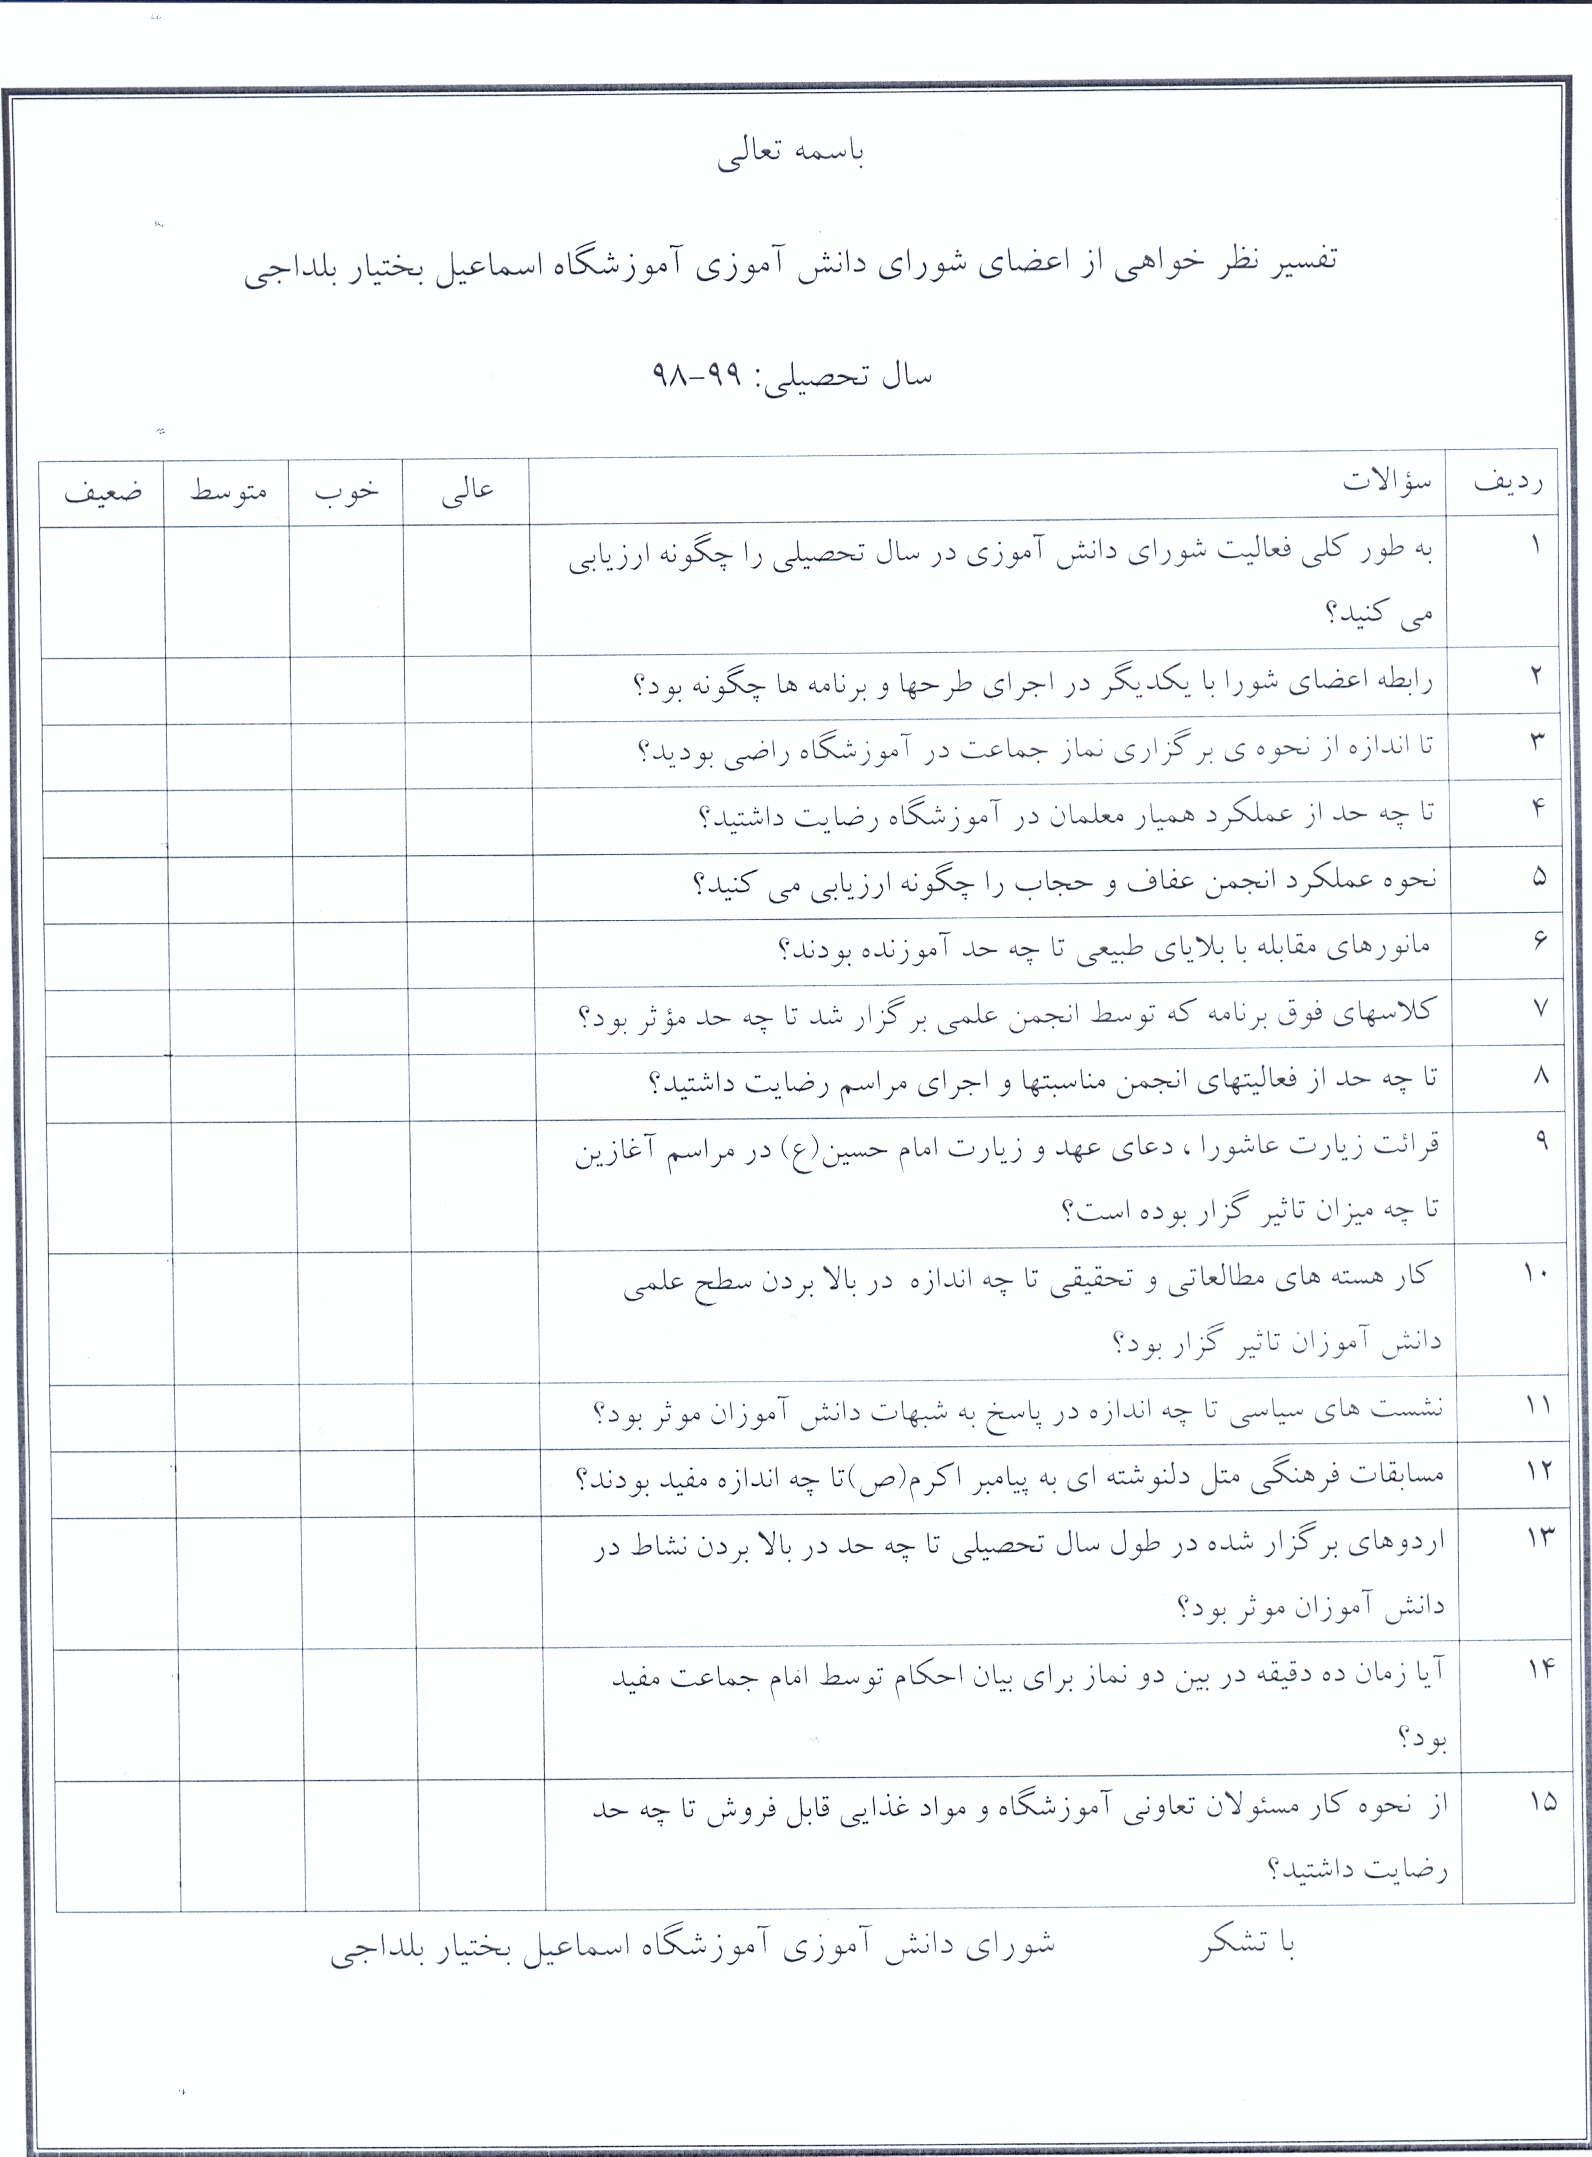 باسمه تعالی
تفسیر نظر خواهی از اعضای شورای دانش آموزی آموزشگاه اسماعیل بختیار بلداجی
سال تحصیلی: ۹۹-۹۸
ردیف سؤالات عالی خوب متوسط ضعیف
۱ به طور کلی فعالیت شورای دانش آموزی در سال تحصیلی را چگونه ارزیابی
می کنید؟
۲ رابطه اعضای شورا با یکدیگر در اجرای طرحها و برنامه ها چگونه بود؟
۳ تا اندازه از نحوه ی برگزاری نماز جماعت در آموزشگاه راضی بودید؟
۴ تا چه حد از عملکرد همیار معلمان در آموزشگاه رضایت داشتید؟
۵ نحوه عملکرد انجمن عفاف و حجاب را چگونه ارزیابی می کنید؟
۶ مانورهای مقابله با بلایای طبیعی تا چه حد آموزنده بودند؟
۷ کلاسهای فوق برنامه که توسط انجمن علمی برگزار شد تا چه حد مؤثر بود؟
۸ تا چه حد از فعالیتهای انجمن مناسبتها و اجرای مراسم رضایت داشتید؟
۹ قرائت زیارت عاشورا ، دعای عهد و زیارت امام حسین(ع) در مراسم آغازین
تا چه میزان تاثیر گزار بوده است؟
۱۰ کار هسته های مطالعاتی و تحقیقی تا چه اندازه در بالا بردن سطح علمی
دانش آموزان تاثیر گزار بود؟
۱۱ نشست های سیاسی تا چه اندازه در پاسخ به شبهات دانش آموزان موثر بود؟
۱۲ مسابقات فرهنگی متل دلنوشته ای به پیامبر اکرم(ص)تا چه اندازه مفید بودند؟
۱۳ اردوهای برگزار شده در طول سال تحصیلی تا چه حد در بالا بردن نشاط در
دانش آموزان موثر بود؟
۱۴ آیا زمان ده دقیقه در بین دو نماز برای بیان احکام توسط امام جماعت مفید
بود؟
۱۵ از نحوه کار مسئولان تعاونی آموزشگاه و مواد غذایی قابل فروش تا چه حد
رضایت داشتید؟
با تشکر شورای دانش آموزی آموزشگاه اسماعیل بختیار بلداجی